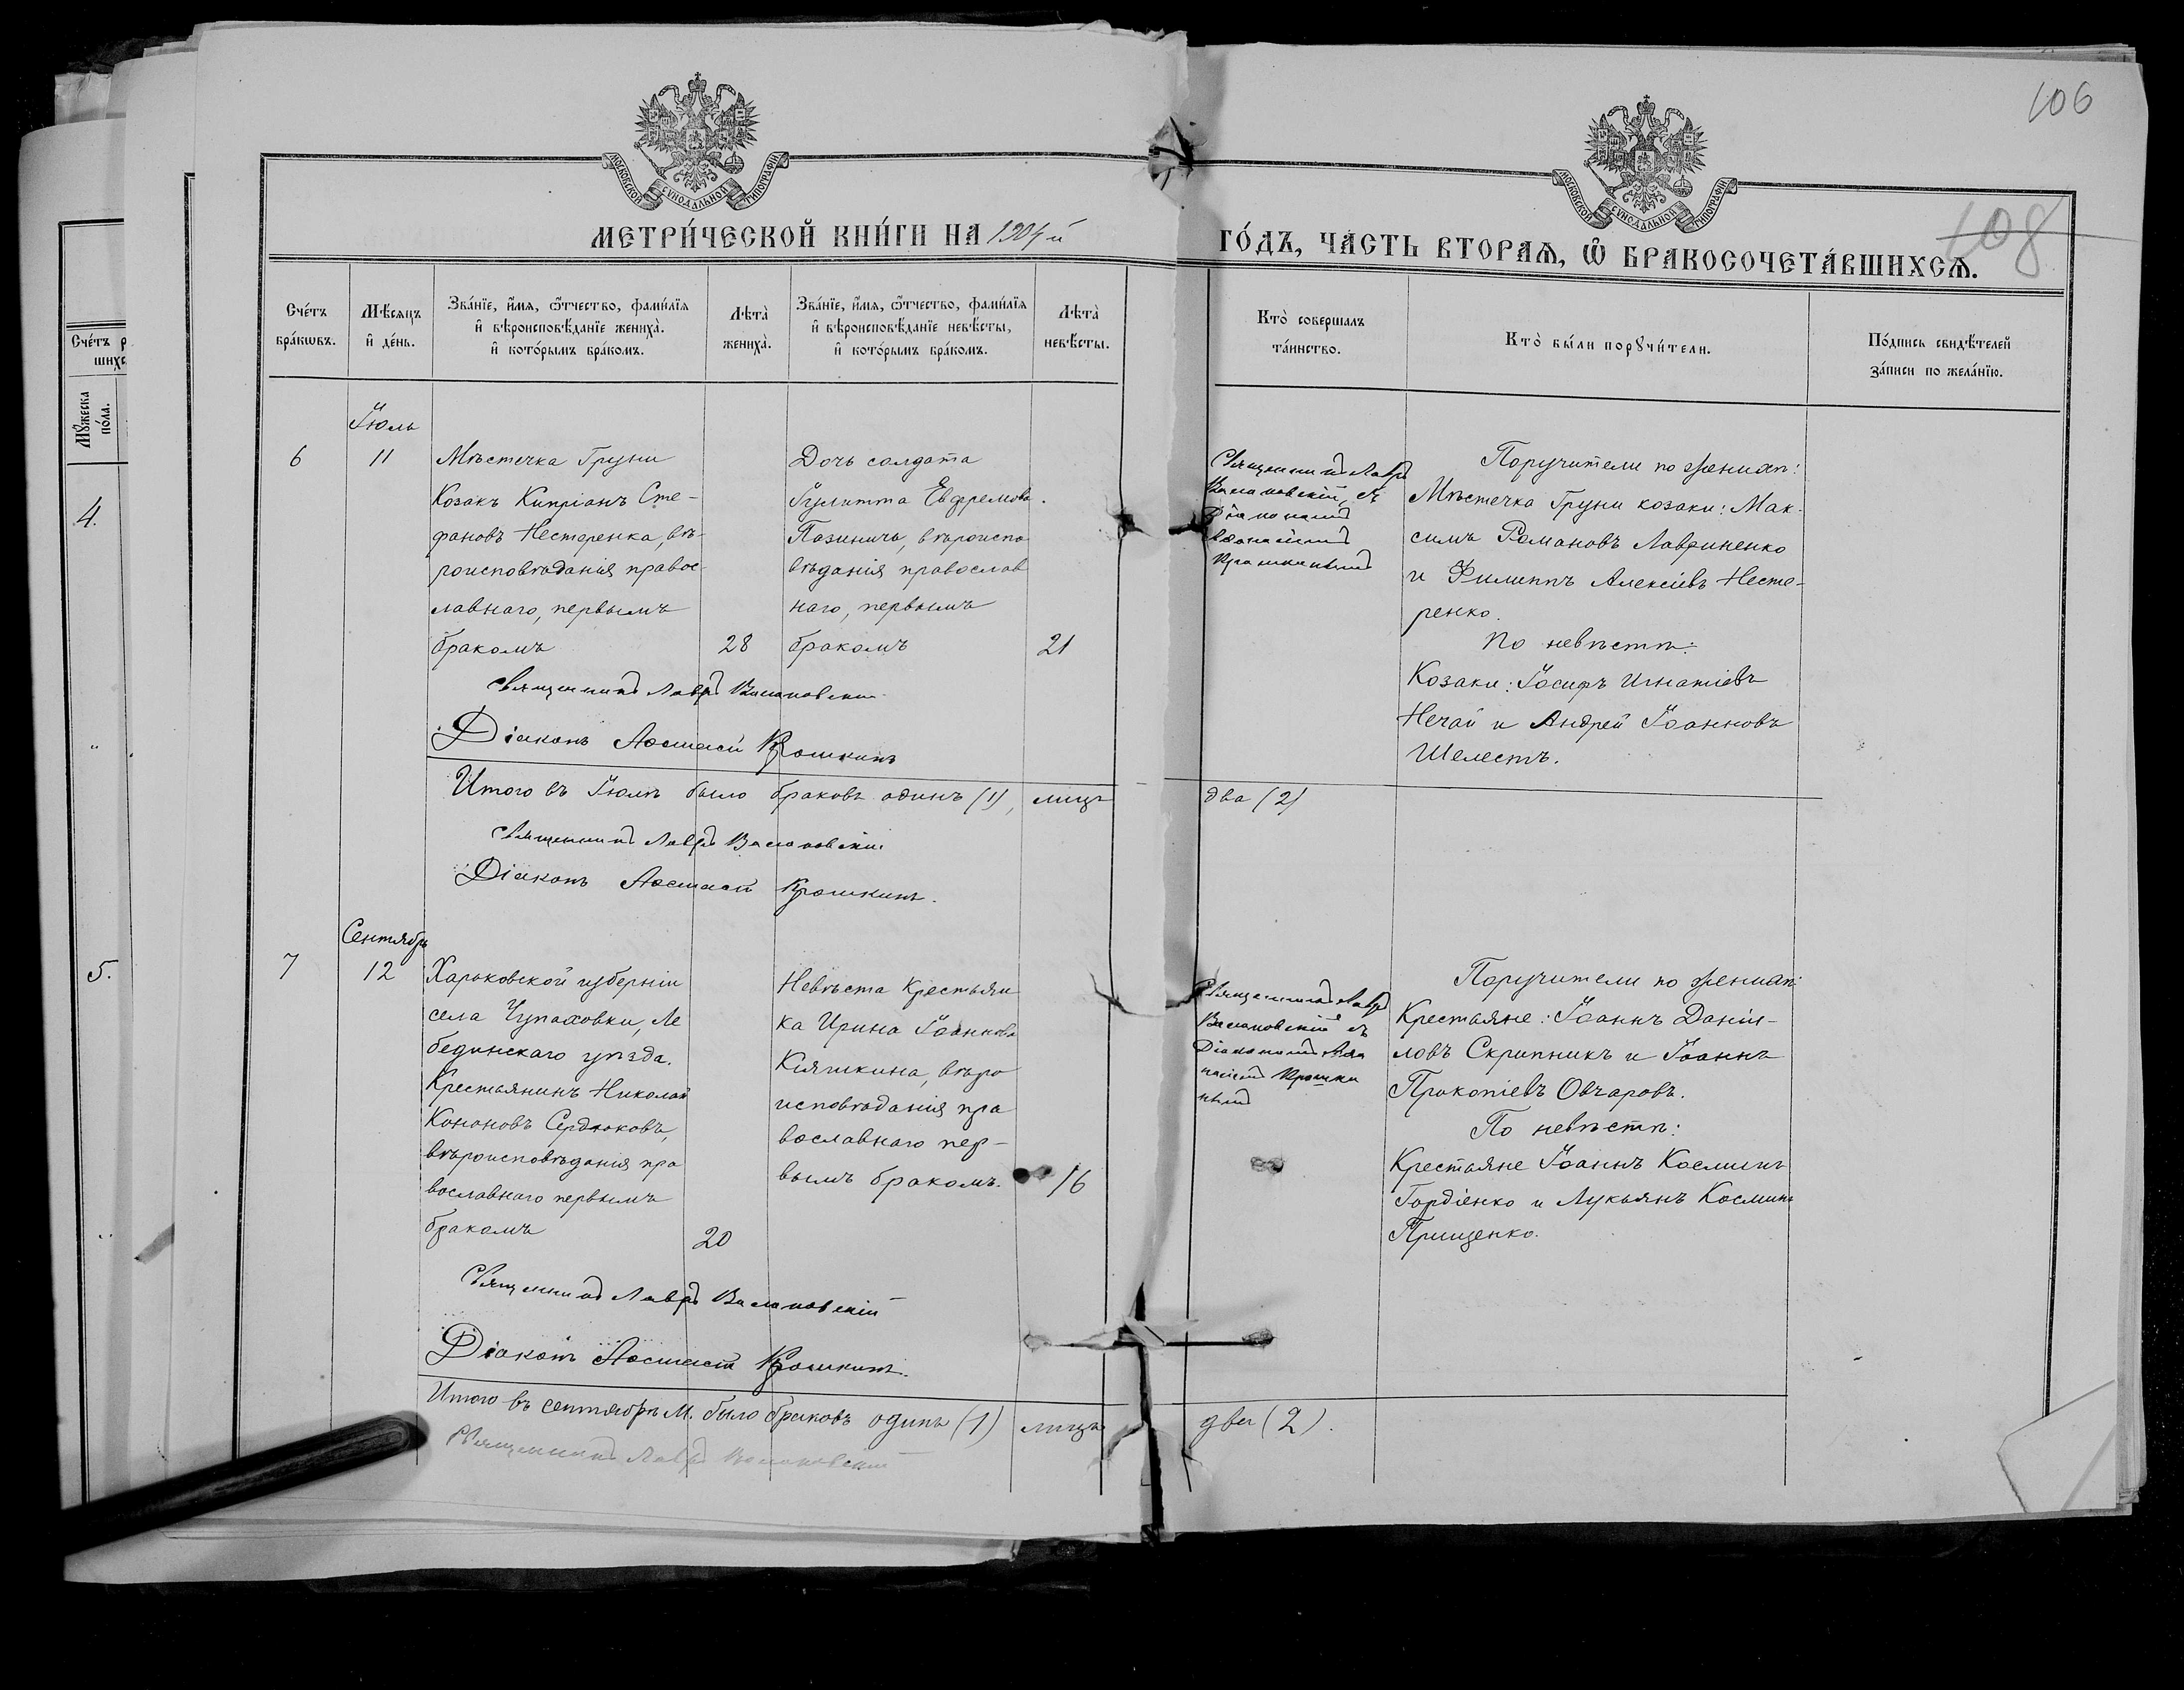 106
108
МОСКОВСКОЙ СУНОДАЛЬНОЙ ТИПОГРАФІИ
МОСКОВСКОЙ СУНОДАЛЬНОЙ ТИПОГРАФІИ
МЕТРИ́ЧЕСКОЙ КНИ́ГИ НА 1904 й
ГО́ДЪ, ЧА́СТЬ ВТОРАѦ, Ѡ҆ БРАКОСОЧЕТА́ВШИХСѦ.
Сче́тъ
бра́кѡвъ.
Мѣ́сяцъ
и҆ де́нь.
Зва́нїе, и҆́мя, ѻ҆́тчество, фами́лїя
и҆ вѣроисповѣ́данїе жениха̀.
и҆ кото́рымъ бра́комъ.
Лѣта̀
жениха̀.
Зва́нїе, и҆́мя, ѻ҆́тчество, фами́лїя
и҆ вѣроисповѣ́данїе невѣ́сты,
и҆ кото́рымъ бра́комъ.
Лѣта̀
невѣ́сты.
Кто̀ соверша́лъ
та́инство.
Кто̀ бы́ли порꙋчи́тели.
По́дпись свидѣ́телей
за́писи по жела́нїю.
Сче́тъ р
шихс
Мꙋ́жеска
по́ла.
4.
5.
Іюль
6
11
Мѣстечка Груни
Козакъ Кипріанъ Сте-
фановъ Нестеренка, вѣ-
роисповѣданія правос-
лавнаго, первымъ
бракомъ
28
Дочь солдата
Іулитта Евфремова
Пазинича, вѣроиспо
вѣданія православ
наго, первымъ
бракомъ
21
Священникъ Лавръ
съ
Діакономъ
Поручители по женихѣ:
Мѣстечка Груни козаки: Мак-
симъ Романовъ Лавриненко
и Филиппъ Алексіевъ Несте-
ренко.
По невѣстѣ:
Козаки: Іосифъ Игнатіевъ
Нечай и Андрей Іоанновъ
Шелестъ.
Священникъ Лавръ
Діаконъ
Итого въ Іюлѣ было браковъ одинъ (1), лицъ два (2)
Священникъ Лавръ
Діаконъ
Сентябрь
7
12
Харьковской губерніи
села Чупаховки, Ле
бединскаго уѣзда.
Крестьянинъ Николай
Кононовъ Сердюковъ,
вѣроисповѣданія пра
вославнаго первымъ
бракомъ
20
Невѣста Крестьян
ка Ирина Іоаннова
вѣро
исповѣданія пра
вославнаго пер-
вымъ бракомъ.
16
Священникъ Лавръ
съ
Діакономъ
Поручители по женихѣ:
Крестьяне: Іоаннъ Даніи-
ловъ Скрипникъ и Іоаннъ
Прокопіевъ Овчаровъ.
По невѣстѣ:
Крестьяне Іоаннъ Косминъ
Гордіенко и Лукьянъ Косминъ
Прищенко.
Священникъ Лавръ
Діаконъ
Итого въ сентябрѣ м. было браковъ одинъ (1) лицъ два (2).
Священникъ Лавръ